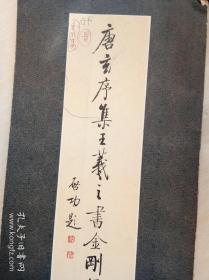 唐玄序集王羲之书金剛
啟功題
孔夫子旧书网
www.kongfz.com